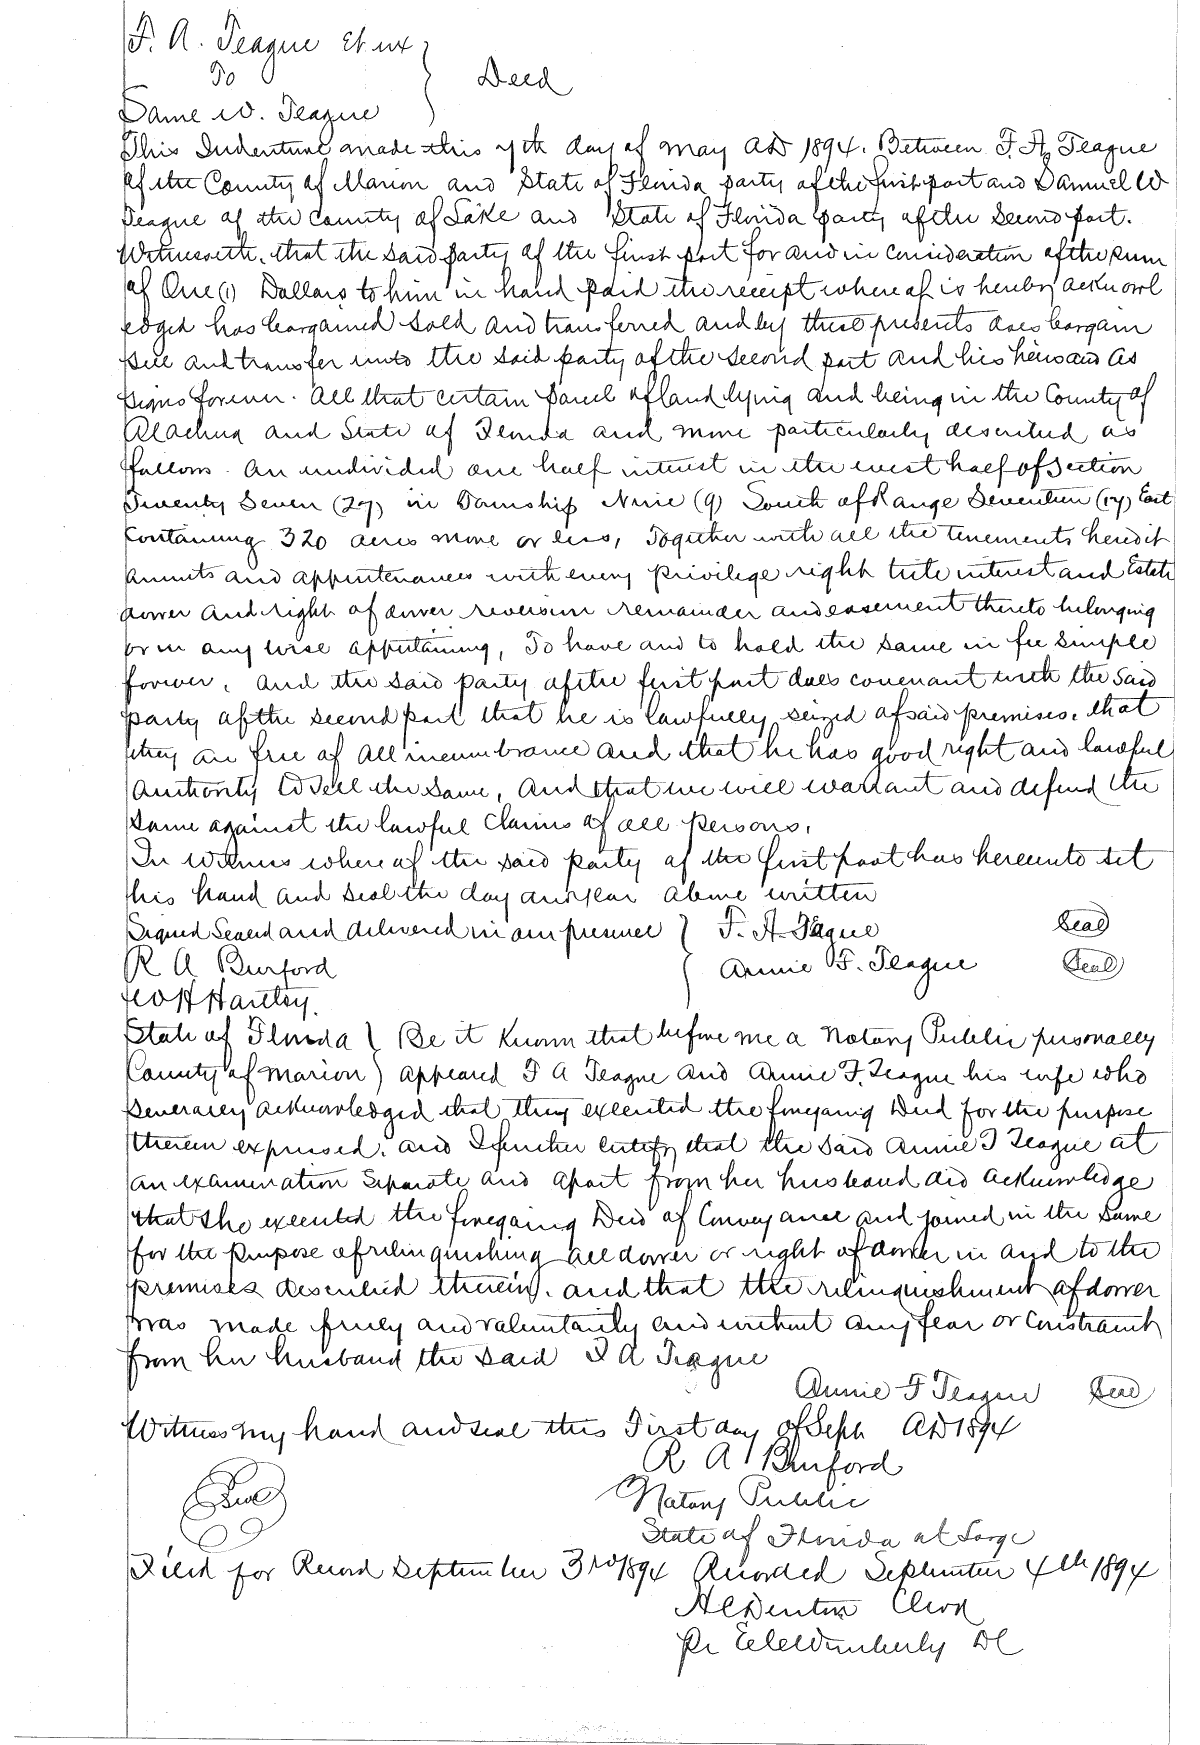 F. A. Teague et ux
To
Deed
Same W. Teague
This Indenture made this 7th day of May AD 1894. Between F. A. Teague
of the County of Marion and State of Florida party of the first part and Samuel W
Teague of the County of Lake and State of Florida party of the second part.
Witnesseth, that the said party of the first part for and in consideration of the sum
of One (1) Dollars to him in hand paid the receipt where of is hereby acknowl
edged has bargained sold and transferred and by these presents does bargain
sell and transfer unto the said party of the second part and his heirs and as
signs forever. All that certain parcel of land lying and being in the County of
Alachua and State of Florida and more particularly described as
follows. An undivided one half interest in the west half of Section
Twenty Seven (27) in Township Nine (9) South of Range Seventeen (17) East
Containing 320 acres more or less, Together with all the tenements heredit
aments and appurtenances with every privilege right title interest and Estate
dower and right of dower reversion remainder and easement thereto belonging
or in any wise appertaining, To have and to hold the same in fee simple
forever, and the said party of the first part does covenant with the said
party of the second part that he is lawfully seized of said premises, that
they are free of all incumbrance and that he has good right and lawful
authority to sell the same, and that we will warrant and defend the
same against the lawful claims of all persons,
In witness where of the said party of the first part has hereunto set
his hand and seal the day and year above written
Signed Sealed and delivered in our presence } F. A Teague Seal
R A Burford Annie F. Teague Seal
Geo H Hartley.
State of Florida } Be it Known that before me a Notary Public personally
County of Marion } appeared F A Teague and Annie F. Teague his wife who
severaley acknowledged that they executed the foregoing Deed for the purpose
therein expressed, and I further certify that the said Annie F Teague at
an examination separate and apart from her husband did acknowledge
that she executed the foregoing Deed of Conveyance and joined in the same
for the purpose of relinquishing all dower or right of dower in and to the
premises described therein, and that the relinquishment of dower
was made freely and voluntarily and without any fear or constraint
from her husband the said F A Teague
Annie F Teague Seal
Witness my hand and seal this First day of Sept AD 1894
R A Burford
Seal
Notary Public
State of Florida at Large
Filed for Record September 3rd 1894 Recorded September 4th 1894
H C Denton Clerk
Pr Wimberly DC